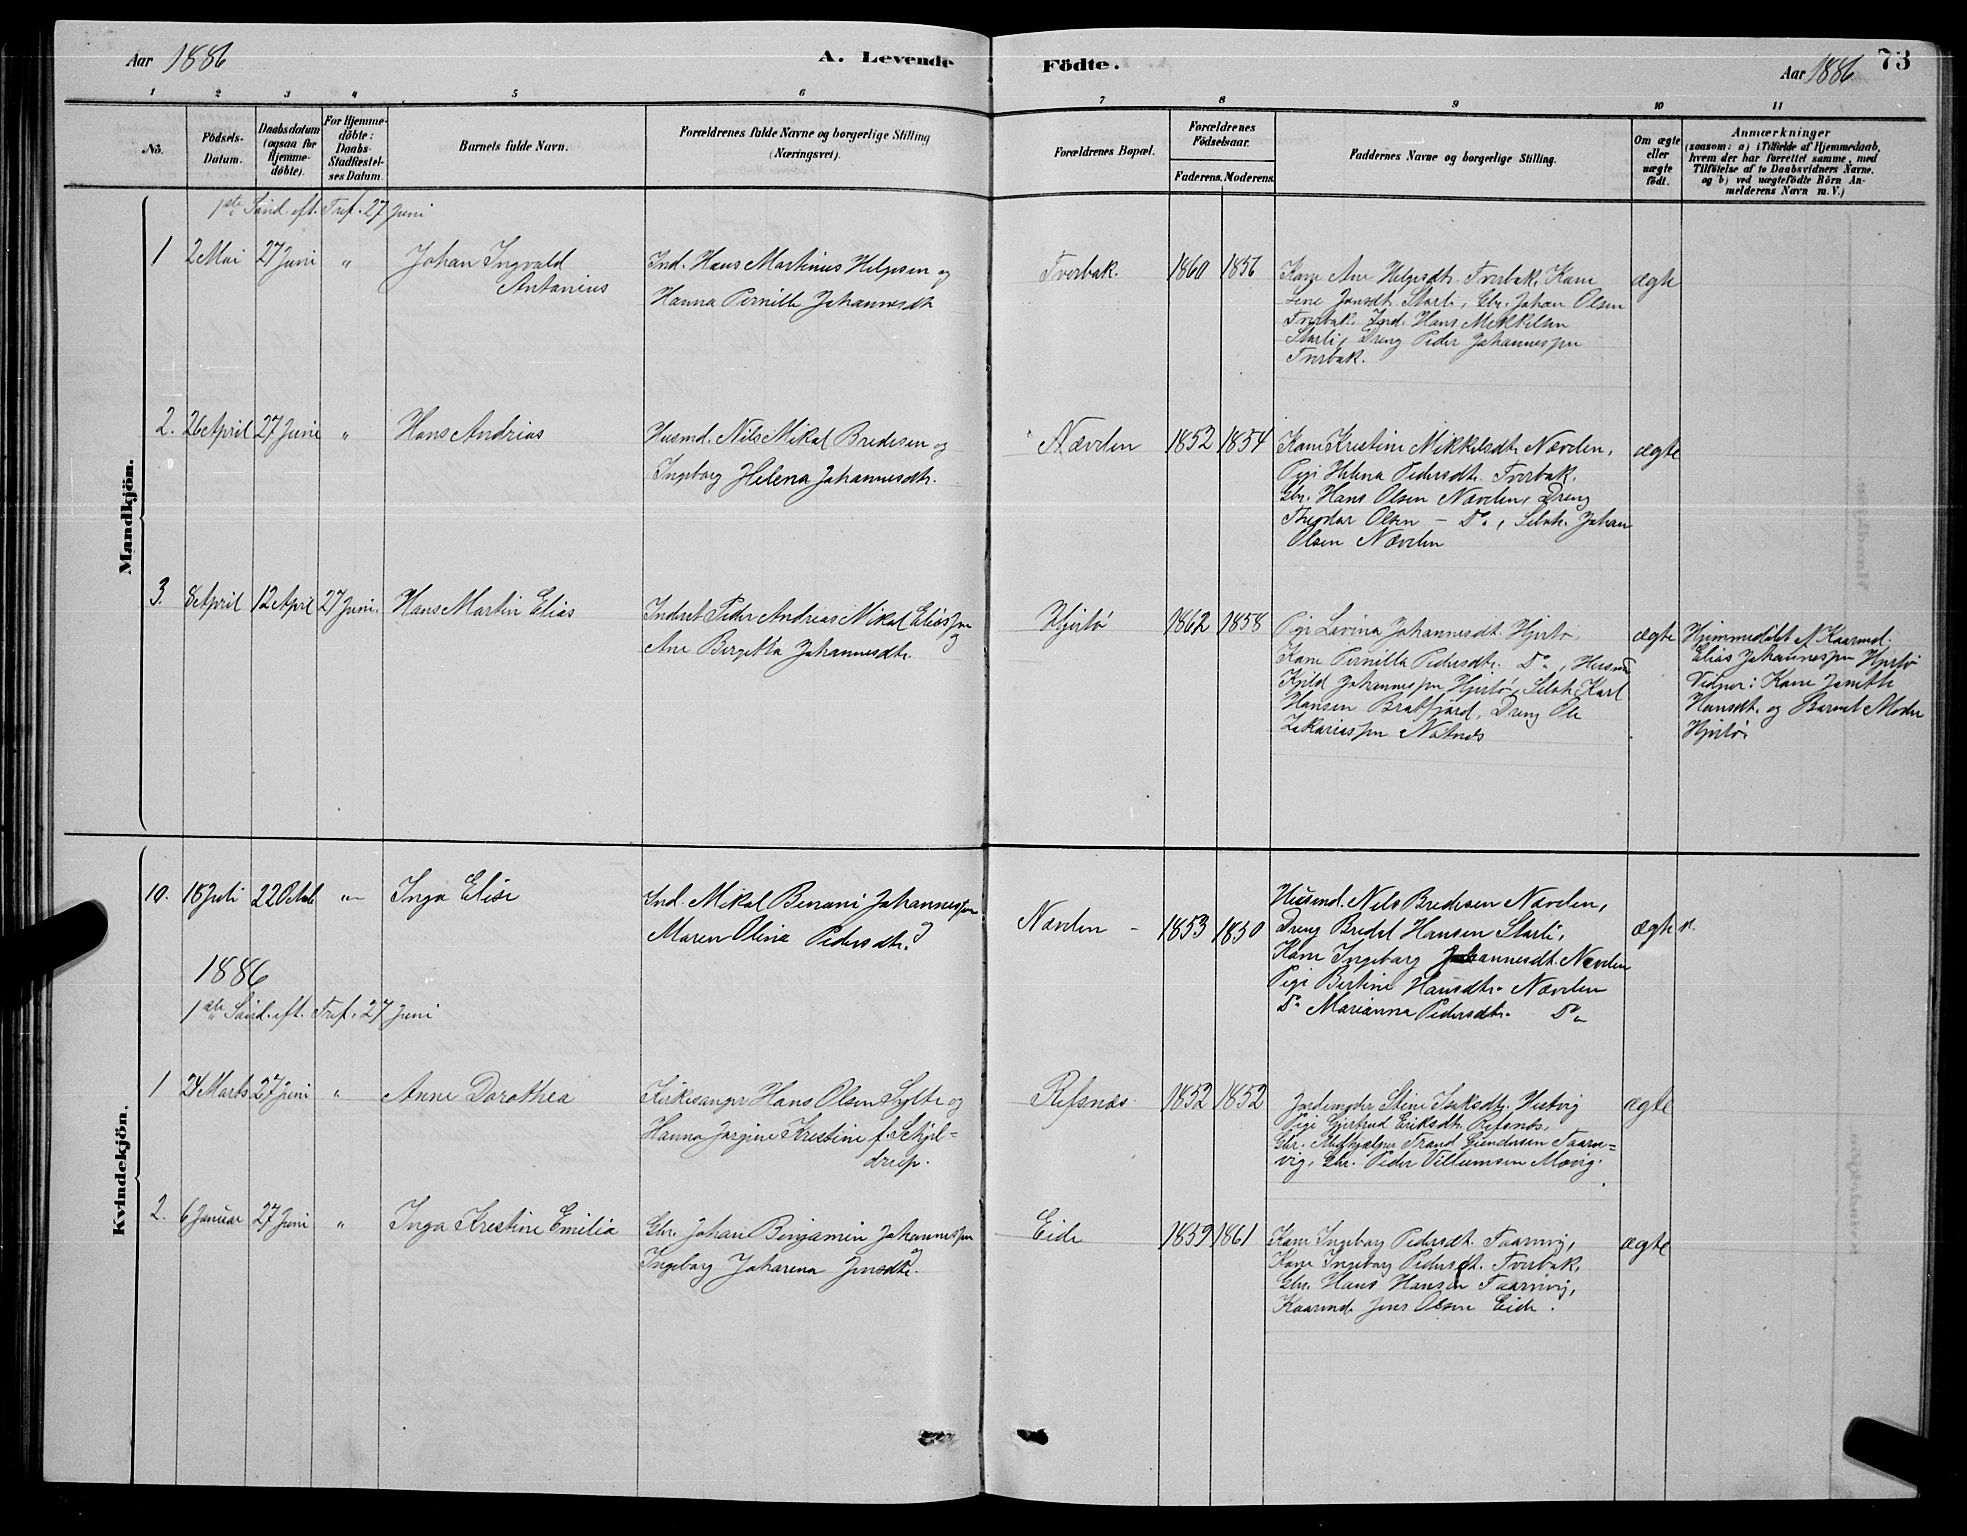 Aar 1886
A. Levende
Födte.
Aar 1886
73
1 2 3 4 5 6 7 8 9 10 11
No.
Födsels-
Datum.
Daabsdatum
(ogsaa for
Hjemme-
döbte).
For Hjemme-
döbte:
Daabs-
Stadfæstel-
ses Datum.
Barnets fulde Navn.
Forældrenes fulde Navne og borgerlige Stilling
(Næringsvei).
Forældrenes Bopæl.
Forældrenes
Födselsaar.
Faderens. Moderens.
Faddernes Navne og borgerlige Stilling.
Om ægte
eller
uægte
födt.
Anmærkninger
(saasom: a) i Tilfælde af Hjemmedaab,
hvem der har forrettet samme, med
Tilföielse af to Daabsvidners Navne.
og b) ved uægtefödte Börn An-
melderens Navn m. V.)
Mandkjön.
1ste Sönd. eft. Tref. 27 Juni
1 2 Mai 27 Juni " Johan Ingvald
Antonius
Ind. Hans Martinus Helgesen og
Hanna Pernille Johannesdtr
Tverbak. 1860 1856
Kone Ane Helgesdtr. Tverbak, Kone
Lene Jonsdtr. Starli, Gbr. Johan Olsen
Tverbak, Ind. Hans Mikkelsen
Starli, Dreng Peder Johannesen
Tverbak.
ægte
2. 26 April 27 Juni " Hans Andrias
Husmd. Nils Mikal Bredesen og
Ingeborg Helena Johannesdtr.
Nævden 1852 1854
Kone Kristine Mikkelsdtr. Nævden,
Pige Helena Pedersdtr. Tverbak.
Gbr. Hans Olsen Nævden, Dreng
Theodor Olsen – Do, Selvst. Johan
Olsen Nævden
ægte
3. 8 April 12 April 27 Juni. Hans Martin Elias
Inderst Peder Andreas Mikal Eliassen
og
Ane Bergitta Johannesdtr.
Hjertö 1862 1858
Pige Lovina Johannesdtr. Hjertö,
Kone Pernilla Pedersdtr. Do, Husmd
Kjeld Johannessen Hjertö, Selvst. Karl
Hansen Bratfjord, Dreng Ole
Zakariassen
ægte
Hjemmedöbt af Kaarmd.
Elias Johannessen Hjertö
Vidner: Kone
Hansdtr. og Barnets Moder
Hjertö.
Kvindekjön.
10. 18 Juli 22 Octob " Inga Elise
Ind. Mikal Benoni Johannessen
og
Maren Olina Pedersdtr.
Nævden – 1853 1850
Husmd. Nils Bredesen Nævden,
Dreng Bredel Hansen Starli,
Kone Ingeborg Johannesdt. Nævden
Pige Bertine Hansdtr. Nævden
Do Marianna Pedersdtr. Do
ægte
1886
1ste Sönd. eft. Tref. 27 Juni
1 24 Marts 27 Juni " Anne Dorothea
Kirkesanger Hans Olsen Sylte og
Hanna Jorgine Kristine f. Schjel-
derup.
Refsnæs. 1852 1852
Jordemoder Stine Hestvig
Pige Gjertrud Eriksdtr. Refsnæs,
Gbr. Trond Taarn-
vig, Gbr. Peder Villumsen Movig.
ægte
2. 6 Januar 27 Juni " Inga Kristine Emilia
Gbr. Johan Benjamin Johannessen
og
Ingeborg Joharena Jensdtr.
Eide 1859 1861
Kone Ingeborg Pedersdt. Taarnvig,
Kone Ingeborg Pedersdt. Tverbak,
Gbr. Hans Hansen Taarnvig,
Kaarmd. Jens Olsen Eide.
ægte